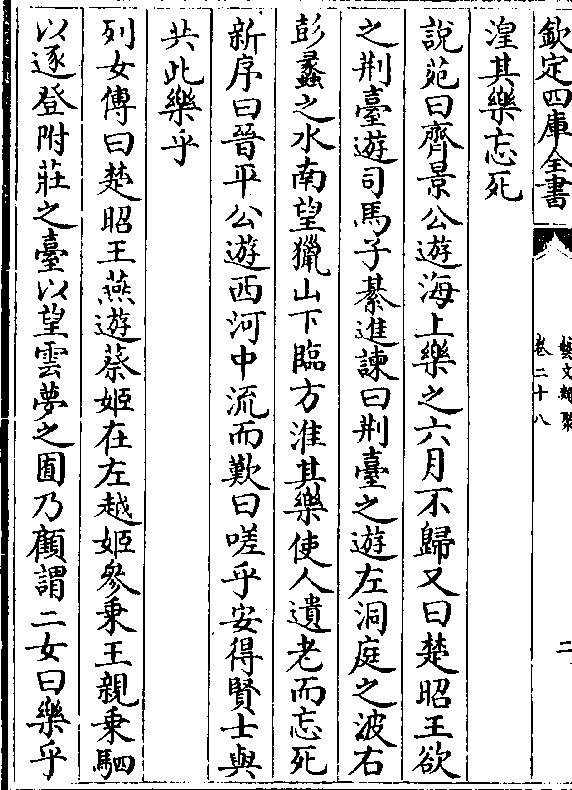 欽定四庫全書
藝文類聚
卷二十八
二
湟其樂忘死
說苑曰齊景公遊海上樂之六月不歸又曰楚昭王欲
之荆臺遊司馬子綦進諫曰荆臺之遊左洞庭之波右
彭蠡之水南望獵山下臨方淮其樂使人遺老而忘死
新序曰晉平公遊西河中流而歎曰嗟乎安得賢士與
共此樂乎
列女傳曰楚昭王燕遊蔡姬在左越姬參乘王親乘駟
以逐登附莊之臺以望雲夢之囿乃顧謂二女曰樂乎